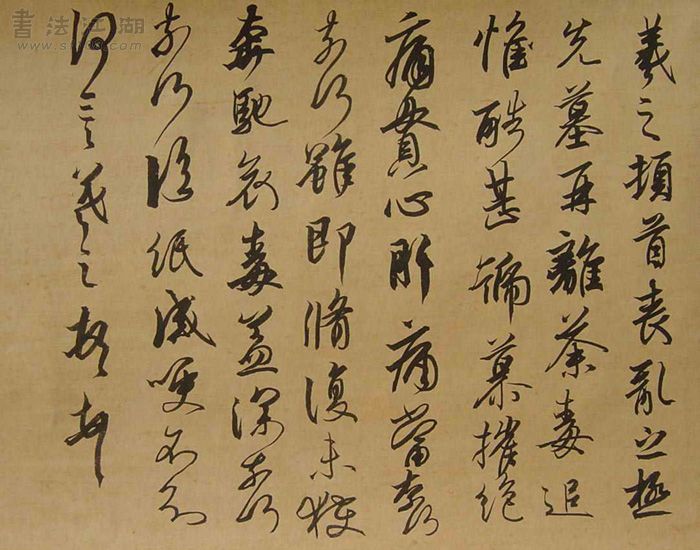 羲之頓首喪亂之極
先墓再離荼毒追
惟酷甚號慕摧絕
痛貫心肝痛當奈何
奈何雖即脩復未獲
奔馳哀毒益深奈何
奈何臨紙感哽不知
何言羲之頓首
書法江湖